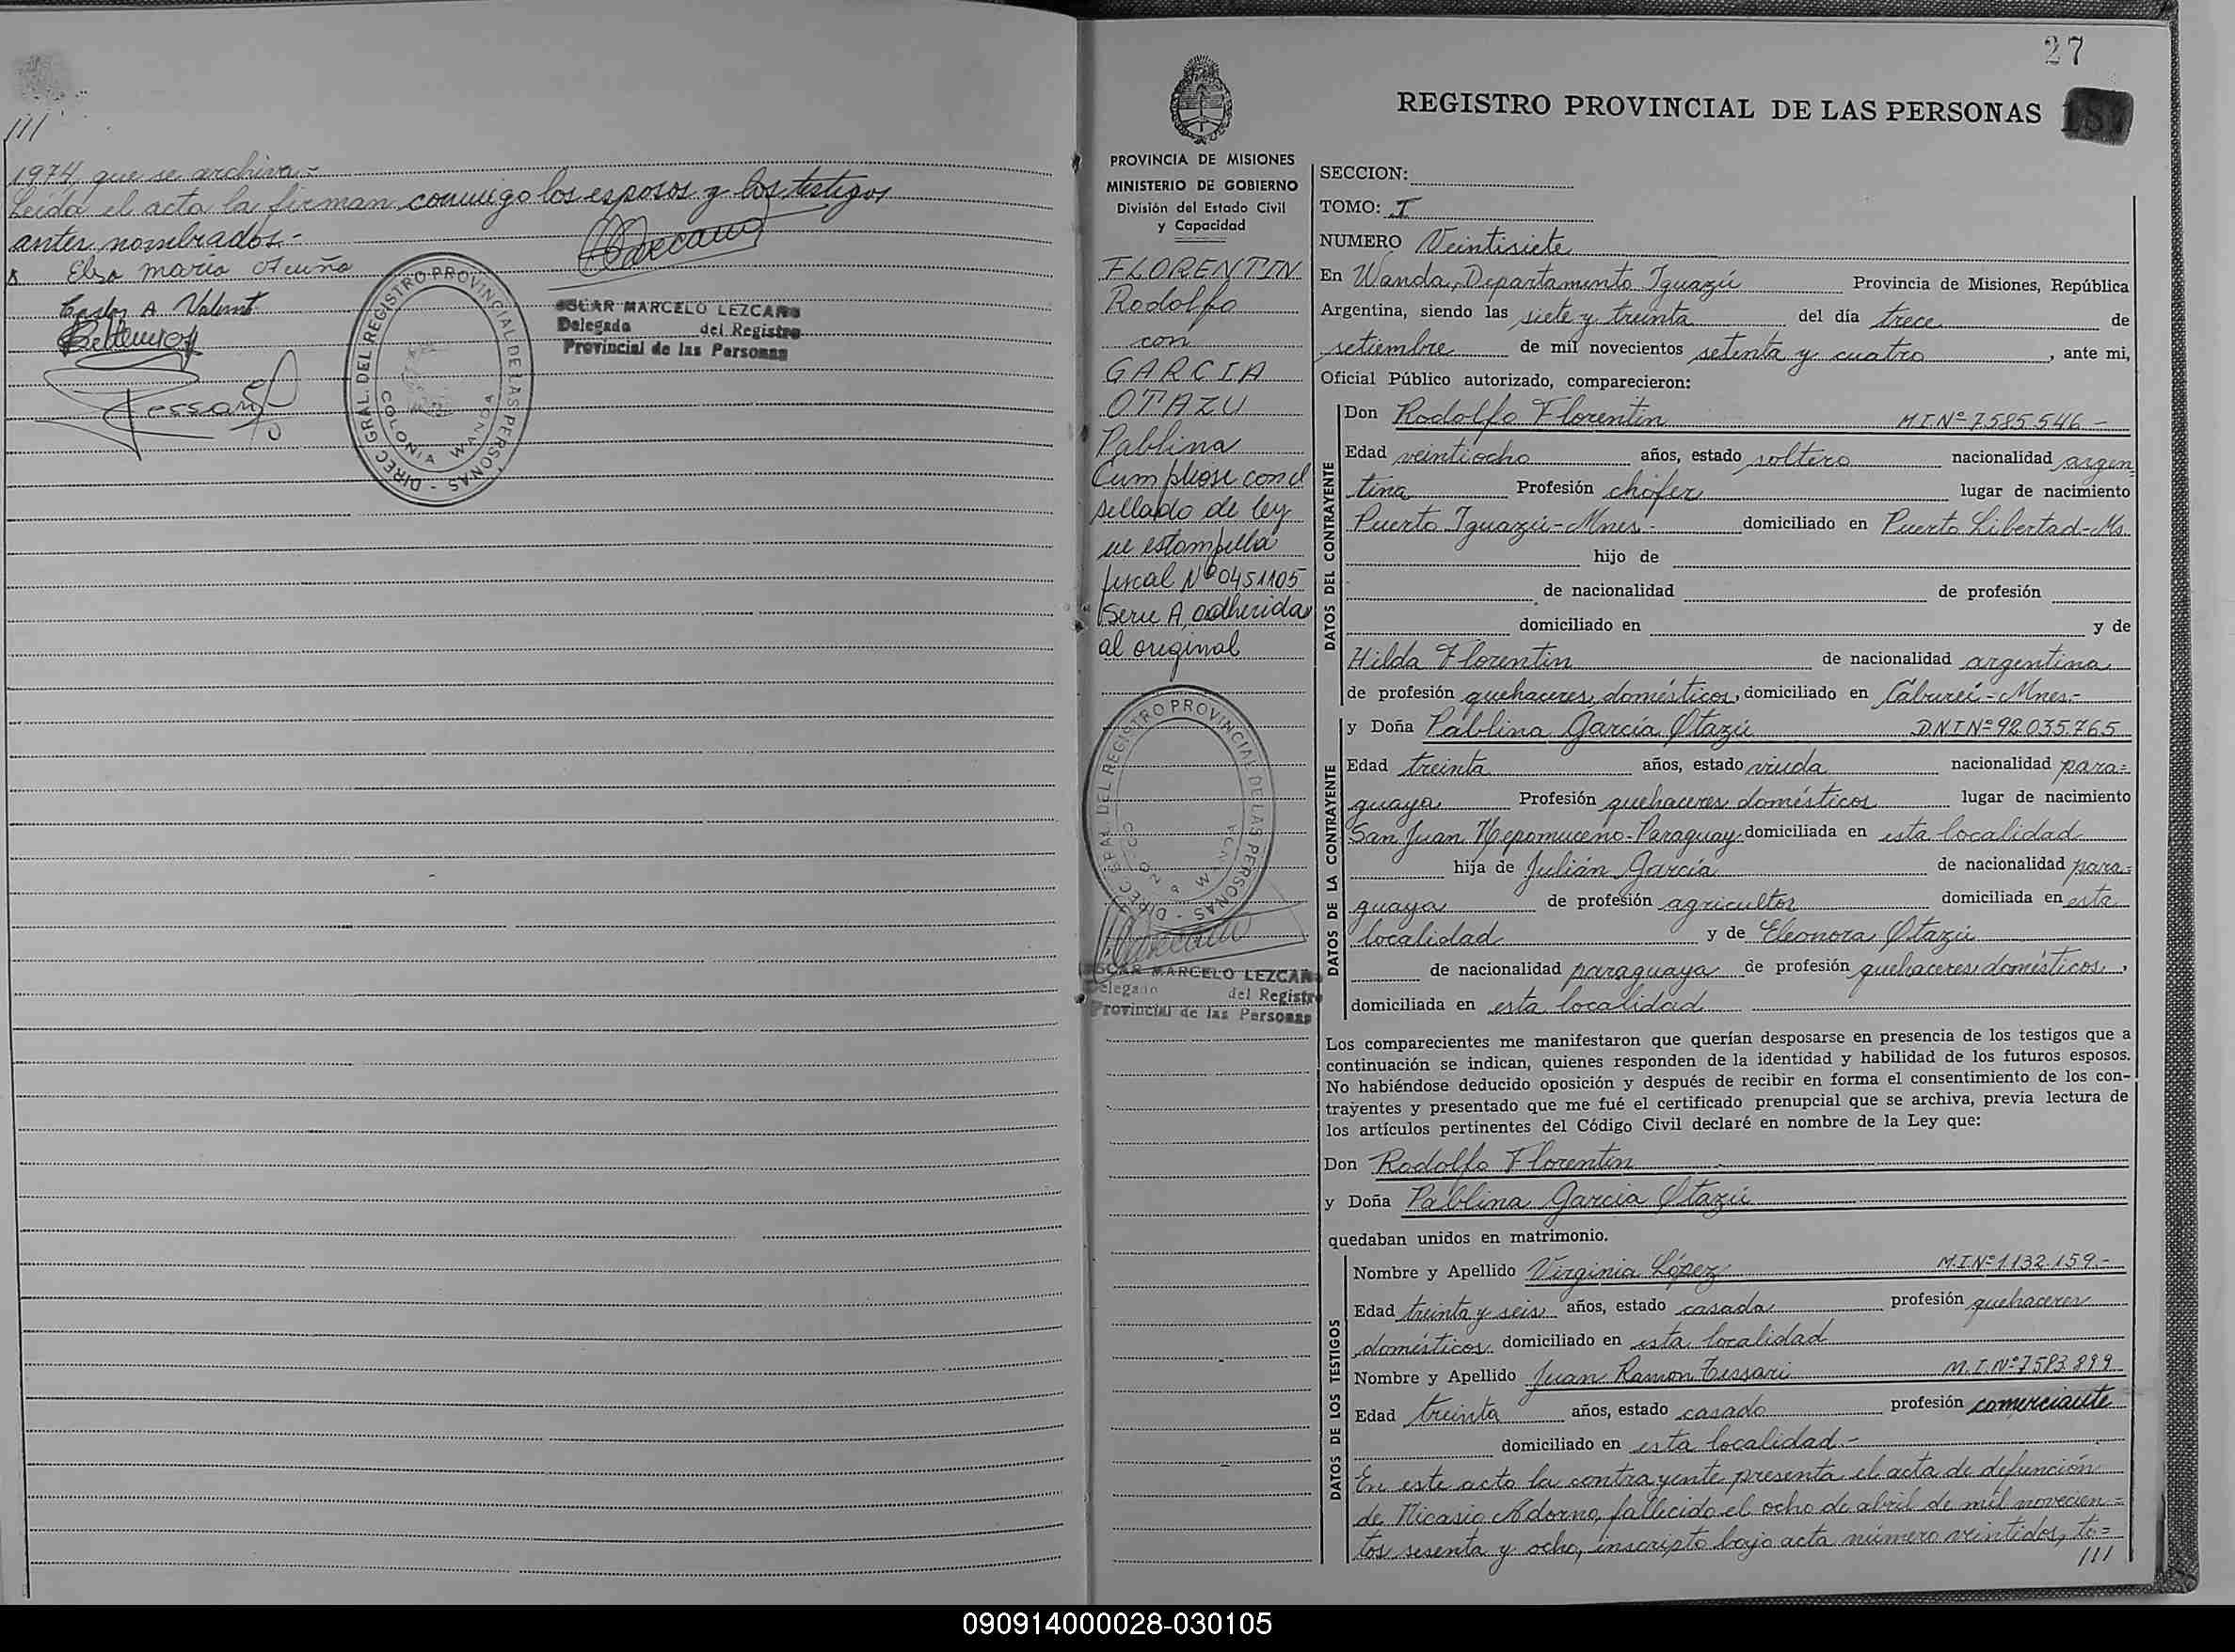 ///
1974, que se archiva.-
Leída el acta la firman conmigo los esposos y los testigos
antes nombrados.-
Elsa maría Acuña
Carlos A Valent
Tessari
OSCAR MARCELO LEZCANO
Delegado del Registro
Provincial de las Personas
DIREC. GRAL. DEL REGISTRO PROVINCIAL DE LAS PERSONAS -
COLONIA WANDA
27
REGISTRO PROVINCIAL DE LAS PERSONAS
PROVINCIA DE MISIONES
MINISTERIO DE GOBIERNO
División del Estado Civil
y Capacidad
FLORENTIN
Rodolfo
con
GARCIA
OTAZU
Pablina
Cumpliose con el
sellado de ley
en estampilla
fiscal Nº 0451105
Serie A, adherida
al original
DIREC. GRAL. DEL REGISTRO PROVINCIAL DE LAS PERSONAS -
COLONIA WANDA
OSCAR MARCELO LEZCANO
Delegado del Registro
Provincial de las Personas
SECCION:
TOMO: I
NUMERO Veintisiete
En Wanda, Departamento Iguazú Provincia de Misiones, República
Argentina, siendo las siete y treinta del día trece de
setiembre de mil novecientos setenta y cuatro, ante mi,
Oficial Público autorizado, comparecieron:
DATOS DEL CONTRAYENTE
Don Rodolfo Florentin M.I.Nº 7.585.546 -
Edad veintiocho años, estado soltero nacionalidad argen=
tina Profesión chófer lugar de nacimiento
Puerto Iguazú-Mnes.- domiciliado en Puerto Libertad-Ms.
hijo de
de nacionalidad de profesión
domiciliado en y de
Hilda Florentin de nacionalidad argentina
de profesión quehaceres domésticos, domiciliado en Caburei-Mnes.-
DATOS DE LA CONTRAYENTE
y Doña Pablina García Otazú D.N.I Nº 92.035.765
Edad treinta años, estado viuda nacionalidad para=
guaya Profesión quehaceres domésticos lugar de nacimiento
San Juan Nepomuceno-Paraguay domiciliada en esta localidad
hija de Julián García de nacionalidad para=
guaya de profesión agricultor domiciliada en esta
localidad y de Eleonora Otazú
de nacionalidad paraguaya de profesión quehaceres domésticos,
domiciliada en esta localidad
Los comparecientes me manifestaron que querían desposarse en presencia de los testigos que a
continuación se indican, quienes responden de la identidad y habilidad de los futuros esposos.
No habiéndose deducido oposición y después de recibir en forma el consentimiento de los con-
trayentes y presentado que me fué el certificado prenupcial que se archiva, previa lectura de
los artículos pertinentes del Código Civil declaré en nombre de la Ley que:
Don Rodolfo Florentin
y Doña Pablina García Otazú
quedaban unidos en matrimonio.
DATOS DE LOS TESTIGOS
Nombre y Apellido Virginia López M.I.Nº 1.132.159.-
Edad treinta y seis años, estado casada profesión quehaceres
domésticos domiciliado en esta localidad
Nombre y Apellido Juan Ramon Tessari M.I.Nº 7.583.899
Edad treinta años, estado casado profesión comerciante
domiciliado en esta localidad.-
En este acto la contrayente presenta el acta de defunción
de Nicasio Adorno, fallecido el ocho de abril de mil novecien=
tos sesenta y ocho, inscripto bajo acta número veintidos, to=
///
090914000028-030105